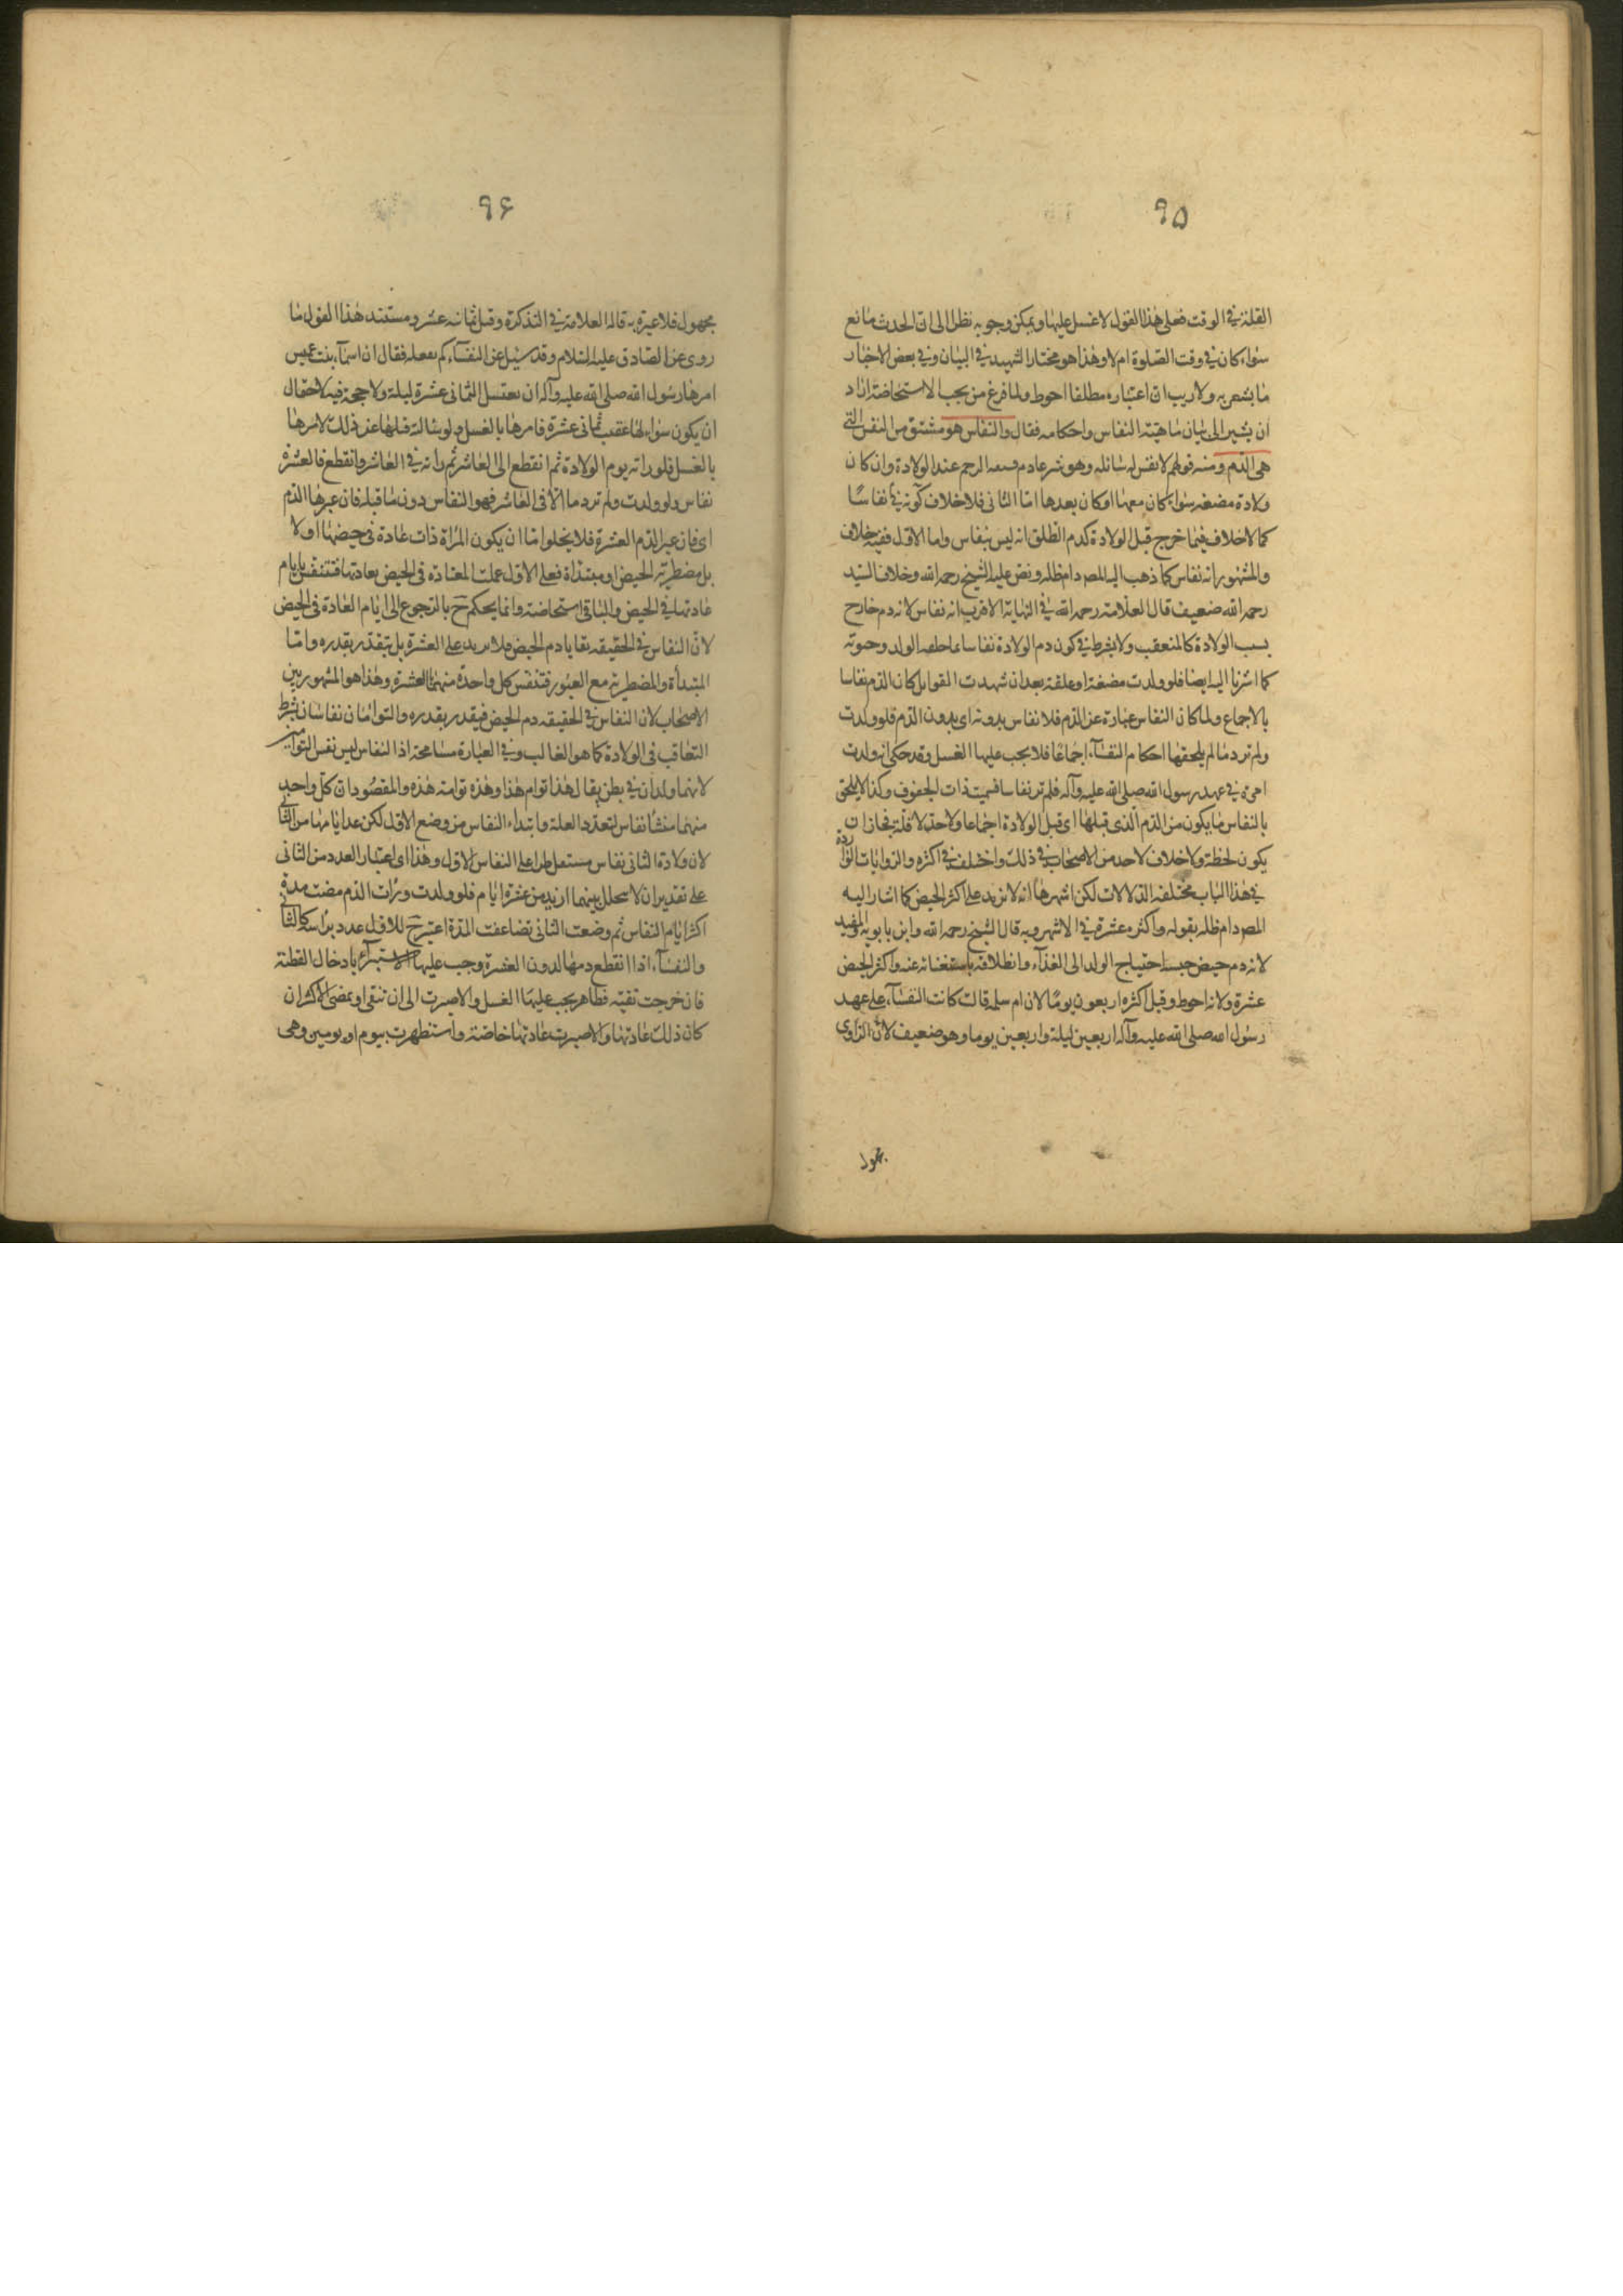 ٩۵
القلة في الوقت فعلى هذا القول لا غسل عليها ويمكن وجوبه نظرا الى ان الحدث مانع
سواء كان في وقت الصلوة ام لا وهذا هو مختار الشهيد في البيان وفي بعض الاخبار
ما يشعر به ولا ريب ان اعتباره مطلقا احوط ولما فرغ من بحث الاستحاضة اراد
ان يشير الى بيان ماهية النفاس واحكامه فقال والنفاس هو مشتق من النفس التي
هي الدم ومنه قولهم لا نفس له سائله وهو شرعا دم الرحم عند الولادة وان كان
ولادة مضغه سواء كان معها او كان بعدها اما الثاني فلا خلاف كونه في نفاسًا
كما لا خلاف فيما خرج قبل الولادة كدم الطلق انه ليس بنفاس واما الاول ففيه خلاف
والمشهور انه نفاس كما ذهب اليه المصـ دام ظله ونص عليه الشيخ رحمه الله وخلاف السيد
رحمه الله ضعيف قال العلامة رحمه الله في النهاية الاقرب انه نفاس لانه دم خارج
بسبب الولادة كالمتعقب ولا يشترط في كون دم الولادة نفاسا الولد وحيوته
كما اشرنا اليه ايضا فلو ولدت مضغة او علقة بعد ان شهدت القوابل كان الدم نفاسا
بالاجماع ولما كان النفاس عبارة عن الدم فلا نفاس بدونه اى بدون الدم فلو ولدت
ولم تر دما لم يلحقها احكام النفسآء اجماعا فلا يجب عليها الغسل وقد حكى انه ولدت
امرءة في عهد رسول الله صلى الله عليه وآله فلم تر نفاسا فسميت ذات الجفوف وكذا لا يلحق
بالنفاس ما يكون من الدم الذى قبلها اى قبل الولادة اجماعا ولا حد لاقله فجاز ان
يكون لحظة ولا خلاف لاحد من الاصحاب في ذلك واختلف في اكثره والروايات الواردة
في هذا الباب مختلفه الدلالات لكن اشهرها انه لا يزيد على اكثر الحيض كما اشار اليه
المصـ دام ظله بقوله واكثره عشرة في الاشهر وبه قال الشيخ رحمه الله وابن بابويه والمفيد
لانه دم حيض حبسه احتياج الولد الى الغذآء وانطلاقه باستغنائه عنه واكثر الحيض
عشرة ولانه احوط وقيل اكثره اربعون يومًا لان ام سلمه قالت كانت النفسآء على عهد
رسول الله صلى الله عليه وآله اربعين ليلة واربعين يوما وهو ضعيف لان الراوى
مجهول
٩۶
مجهول فلا عبرة به قاله العلامة في التذكرة وقيل ثمانيه عشر ومستند هذا القول ما
روى عن الصادق عليه السلام وقد سئل عن النفسآء كم فقال ان اسمآء بنت عميس
امرها رسول الله صلى الله عليه وآله ان تغتسل لثمانى عشرة ليلة ولا حجة فيه لاحتمال
ان يكون سؤالها عقيب ثمانى عشرة فامرها بالغسل ولو سالته قبلها عن ذلك لامرها
بالغسل فلو راته يوم الولادة ثم انقطع الى العاشر ثم راته في العاشر وانقطع فالعشرة
نفاس ولو ولدت ولم تر دما الا فى العاشر فهو النفاس دون ما قبله فان عبرها الدم
اى فان عبر الدم العشرة فلا يخلو اما ان يكون المرأة ذات عادة فى حيضها او لا
بل مضطربة الحيض او مبتدأة فعلى الاول عملت المعتادة فى الحيض بعادتها فتتنفس بايام
عادتها في الحيض والباقى استحاضة وانما يحكم ح بالرجوع الى ايام العادة فى الحيض
لان النفاس في الحقيقه بقايا دم الحيض فلا يزيد على العشرة بل يتقدر بقدره واما
المبتدأة والمضطربة مع العبور فتتنفس كل واحدة منهما العشرة وهذا هو المشهور بين
الاصحاب لان النفاس في الحقيقه دم الحيض فيقدر بقدره والتوامان نفاسان بشرط
التعاقب فى الولادة كما هو الغالب وفي العبارة مسامحة اذ النفاس ليس نفس التوامين
لانهما ولدان في بطن يقال هذا توام هذا وهذه توامة هذه والمقصود ان كل واحد
منهما منشأ نفاس لتعدد العلة وابتداء النفاس من وضع الاول لكن عدايامها من الثانى
لان ولادة الثانى نفاس مستقل طرا على النفاس الاول وهذا اى اعتبار العدد من الثانى
على تقدير ان لا يتخلل بينهما ازيد من عشرة ايام فلو ولدت ورأت الدم مضت مدة
اكثر ايام النفاس ثم وضعت الثانى تضاعفت المدة اعتبر ح للاول عدد براسه كالثانى
والنفسآء اذا انقطع دمها لدون العشرة وجب عليها الاستبرآء بادخال القطنة
فان خرجت نقيه فطاهر يجب عليها الغسل والا صبرت الى ان تنقى او بمضى الاكثر ان
كان ذلك عادتها والا صبرت عادتها خاصة واستظهرت بيوم او يومين وهى